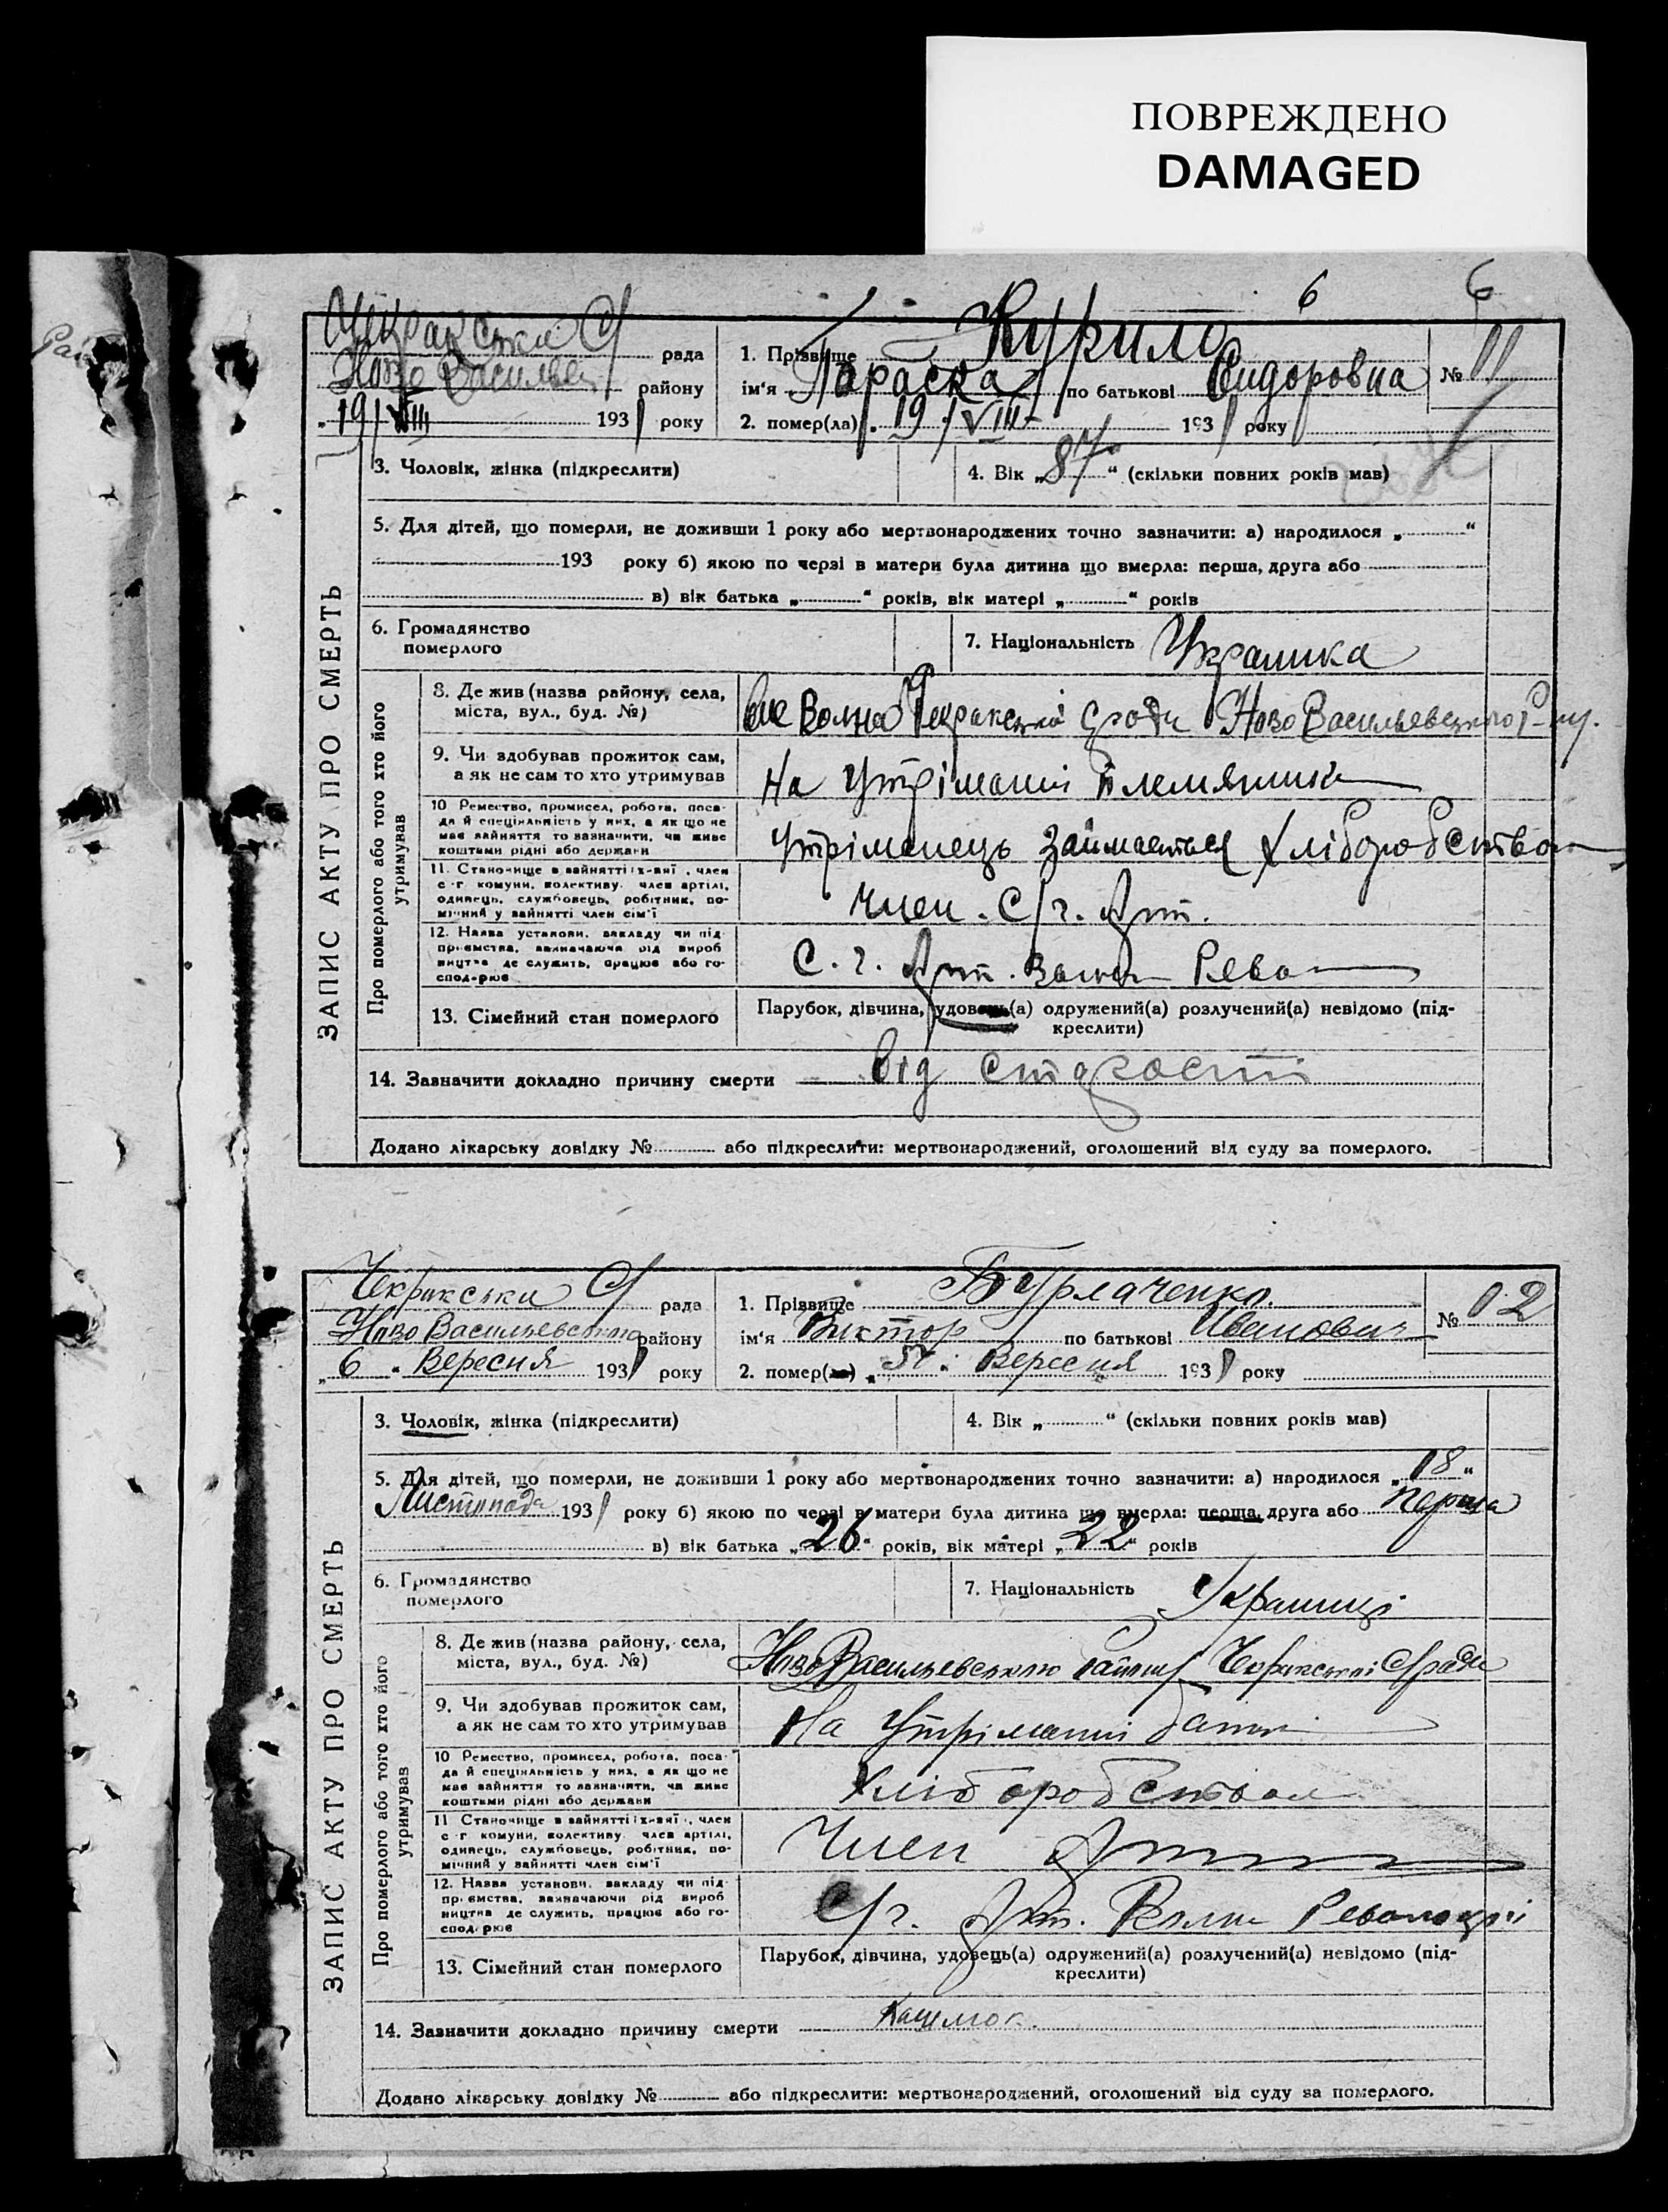 ПОВРЕЖДЕНО
DAMAGED
6 6
Чекракська С/ рада
Ново Васильев району
„19/VIII 1931 року
1. Прізвище Курило
ім‘я Параска по батькові Сидоровна
2. помер(ла) „19/VIII 1931 року
№ 11
ЗАПИС АКТУ ПРО СМЕРТЬ
3. Чоловік, жінка (підкреслити)
4. Вік „87“ (скільки повних років мав)
5. Для дітей, що померли, не доживши 1 року або мертвонароджених точно зазначити: а) народилося „ “
193 року б) якою по черзі в матери була дитина що вмерла: перша, друга або
в) вік батька „ “ років, вік матері „ “ років
6. Громадянство
померлого
7. Національність Украинка
Про померлого або того хто його
утримував
8. Де жив (назва району, села,
міста, вул., буд. №)
Чекракської С/ради Ново Васильевського Р-ну.
9. Чи здобував прожиток сам,
а як не сам то хто утримував
На утріманні племянника
10 Ремество, промисел, робота, поса-
да й спеціяльність у них, а як що не
має зайняття то зазначити, чи живе
коштами рідні або держави
Утріманець займається хліборобством
11. Становище в зайнятті: х-вні, член
с-г комуни, колективу, член артілі,
одинець, службовець, робітник, по-
мічний у зайнятті член сім‘ї
член. С/г. Арт.
12. Назва установи, закладу чи під-
приємства, зазначаючи рід вироб-
ництва де служить, працює або го-
сподарює
С. г. Арт. Рево
13. Сімейний стан померлого
Парубок, дівчина, удовець(а) одружений(а) розлучений(а) невідомо (під-
креслити)
14. Зазначити докладно причину смерти від старості
Додано лікарську довідку № або підкреслити: мертвонароджений, оголошений від суду за померлого.
Чекракська С/ рада
Ново Васильевського району
„6“ Вересня 1931 року
1. Прізвище Бурлаченко.
ім‘я Виктор по батькові Иванович
2. помер(ла) „5“ Вересня 1931 року
№ 12
ЗАПИС АКТУ ПРО СМЕРТЬ
3. Чоловік, жінка (підкреслити)
4. Вік „ “ (скільки повних років мав)
5. Для дітей, що померли, не доживши 1 року або мертвонароджених точно зазначити: а) народилося „18“
Листопада 193 року б) якою по черзі в матери була дитина що вмерла: перша, друга або перша
в) вік батька „26“ років, вік матері „22“ років
6. Громадянство
померлого
7. Національність Украинці
Про померлого або того хто його
утримував
8. Де жив (назва району, села,
міста, вул., буд. №)
Ново Васильевського району Чекракської С/ради
9. Чи здобував прожиток сам,
а як не сам то хто утримував
На утріманні батька
10 Ремество, промисел, робота, поса-
да й спеціяльність у них, а як що не
має зайняття то зазначити, чи живе
коштами рідні або держави
Хліборобством
11 Становище в зайнятті: х-вні, член
с-г комуни, колективу, член артілі,
одинець, службовець, робітник, по-
мічний у зайнятті член сім‘ї
Член Арт
12. Назва установи, закладу чи під-
приємства, зазначаючи рід вироб-
ництва де служить, працює або го-
сподарює
С/г. Арт. Волна Революції
13. Сімейний стан померлого
Парубок, дівчина, удовець(а) одружений(а) розлучений(а) невідомо (під-
креслити)
14. Зазначити докладно причину смерти Кашлюк.
Додано лікарську довідку № або підкреслити: мертвонароджений, оголошений від суду за померлого.